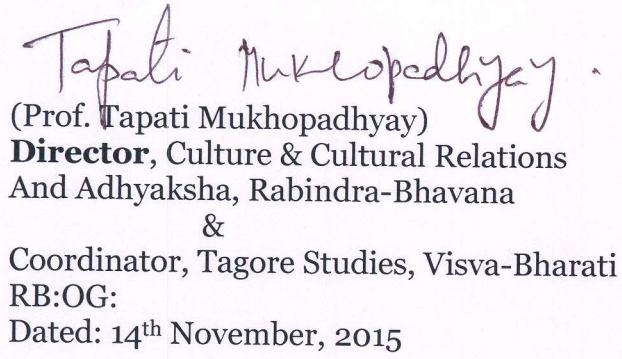 Tapati Mukhopadhyay.
(Prof. Tapati Mukhopadhyay)
Director, Culture & Cultural Relations
And Adhyaksha, Rabindra-Bhavana
&
Coordinator, Tagore Studies, Visva-Bharati
RB:OG:
Dated: 14th November, 2015